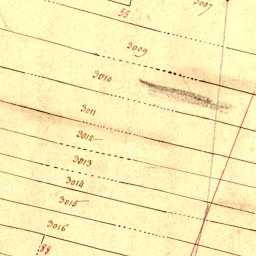 3007
55
3009
3010
3011
3012
3013
3014
3015
3016